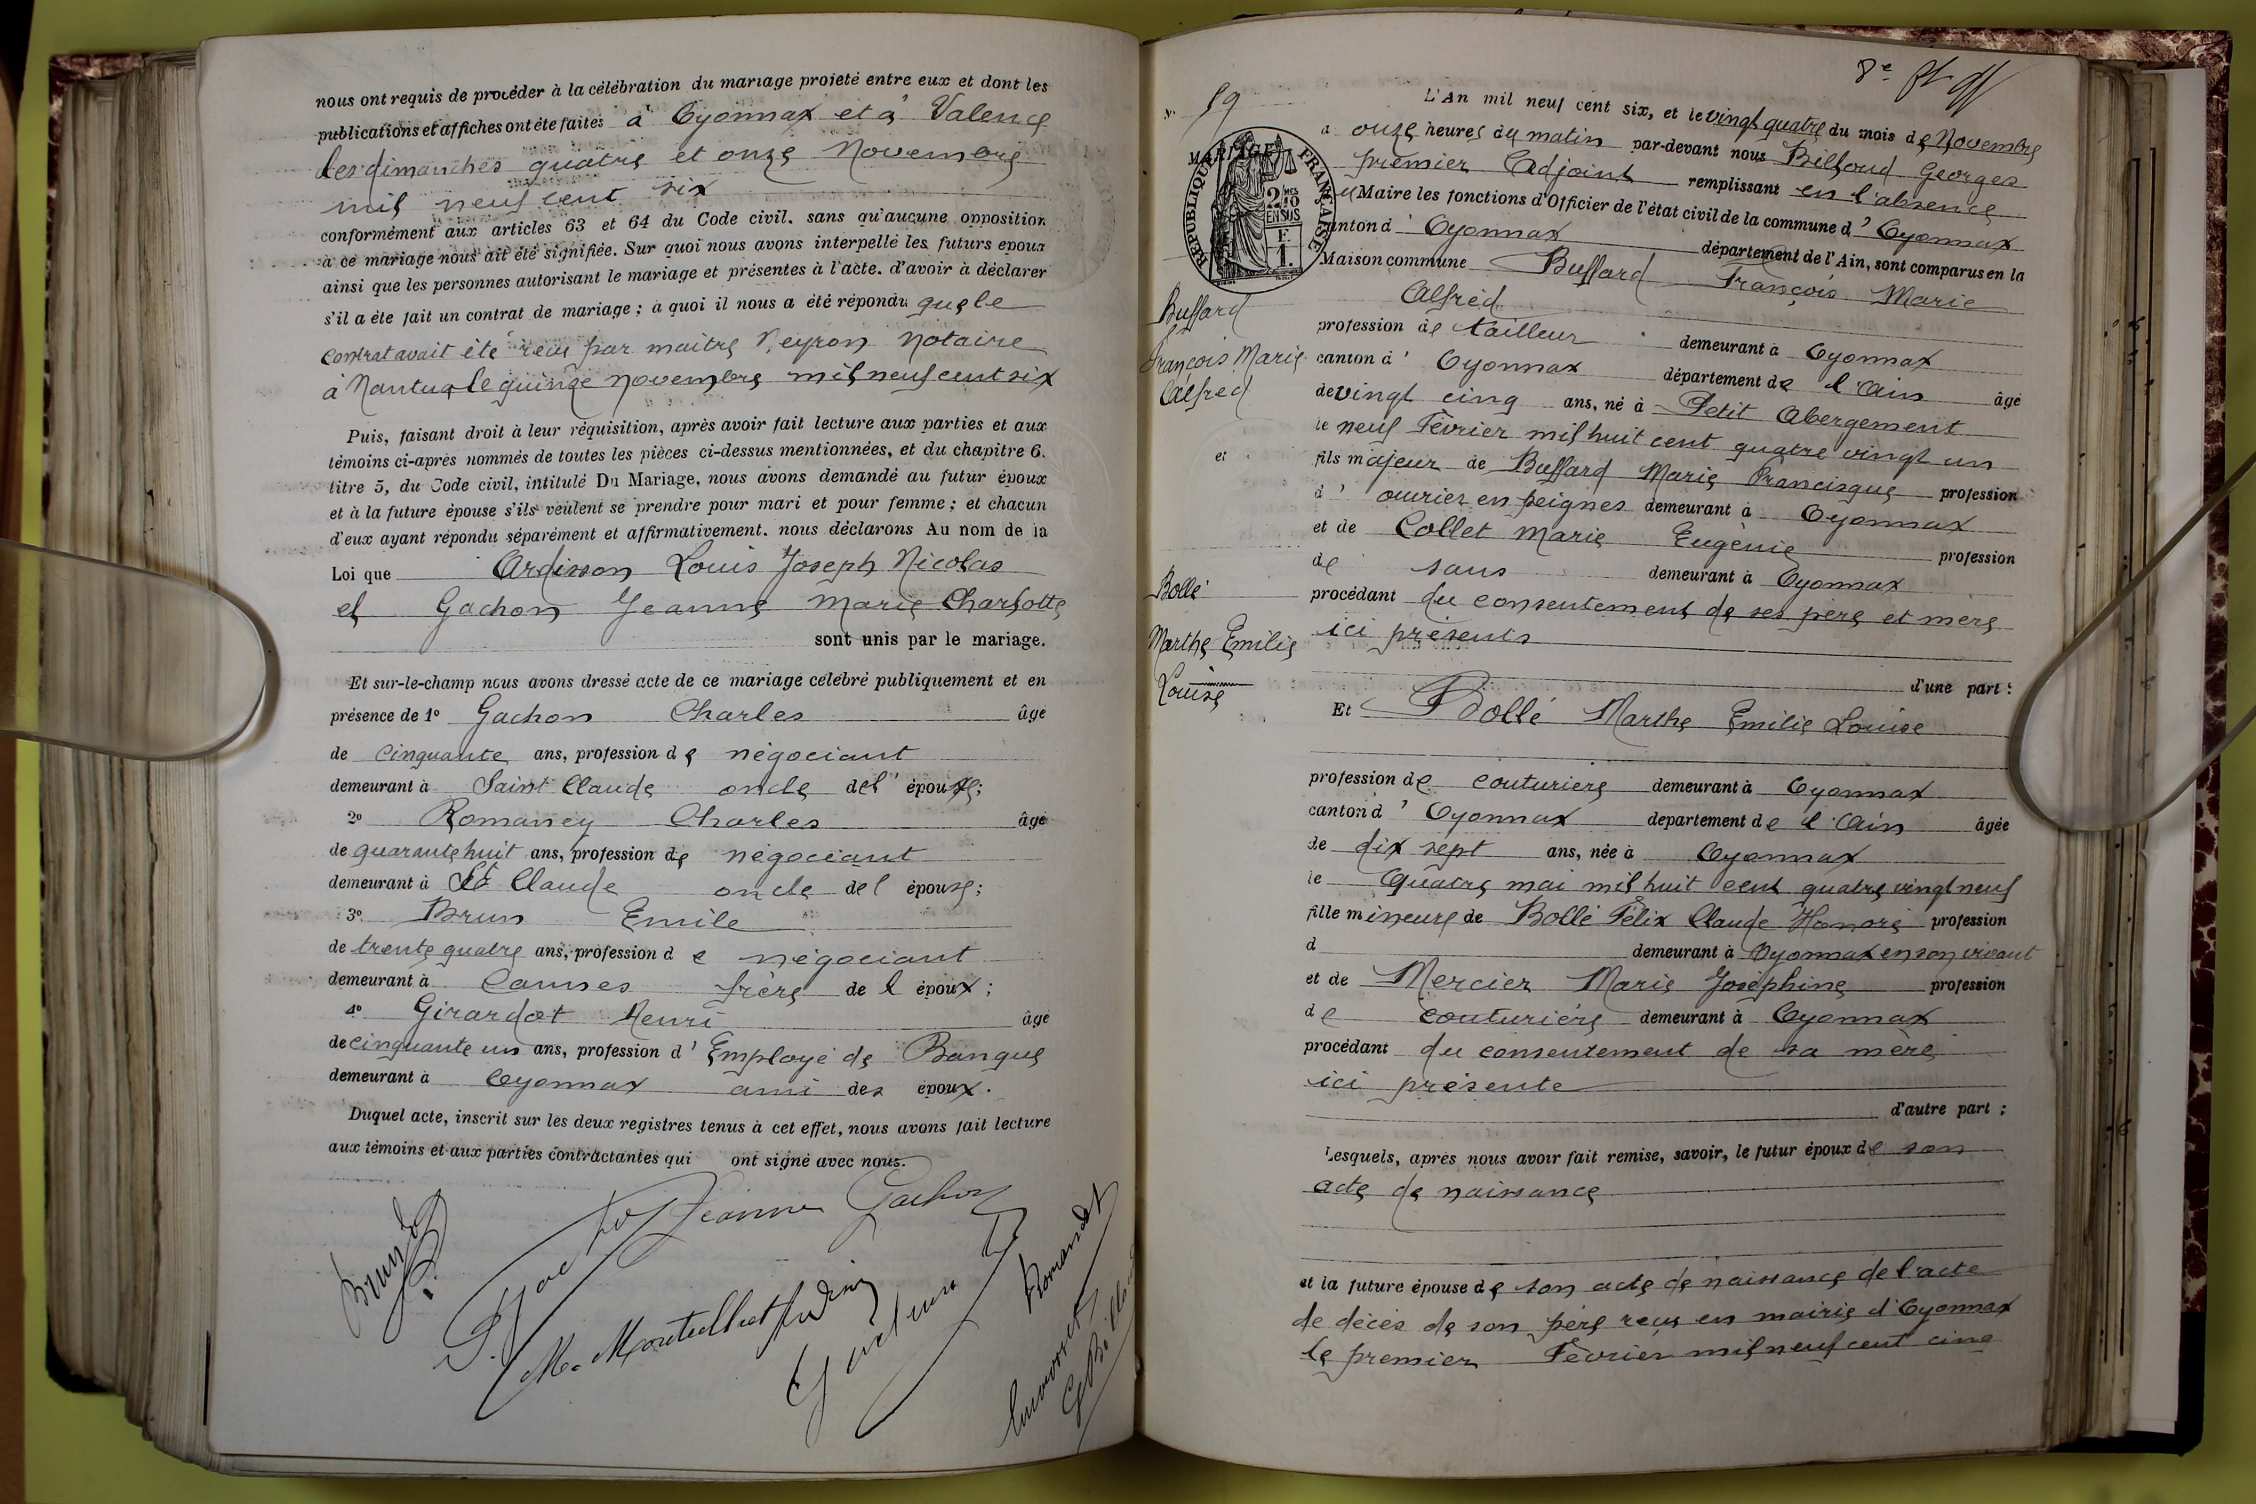 nous ont requis de procéder à la célébration du mariage projeté entre eux et dont les
publications et affiches ont été faites à Oyonnax et à Valence
les dimanches quatre et onze Novembre
mil neuf cent six
conformément aux articles 63 et 64 du Code civil. sans qu'aucune opposition
à ce mariage nous ait été signifiée. Sur quoi nous avons interpellé les futurs époux
ainsi que les personnes autorisant le mariage et présentes à l'acte. d'avoir à déclarer
s'il a été fait un contrat de mariage ; à quoi il nous a été répondu que le
contrat avait été reçu par maitre Neyron Notaire
à Nantua le quinze novembre mil neuf cent six
Puis, faisant droit à leur réquisition, après avoir fait lecture aux parties et aux
témoins ci-après nommés de toutes les pièces ci-dessus mentionnées, et du chapitre 6.
titre 5, du Code civil, intitulé Du Mariage, nous avons demandé au futur époux
et à la future épouse s'ils veulent se prendre pour mari et pour femme ; et chacun
d'eux ayant répondu séparément et affirmativement. nous déclarons Au nom de la
Loi que Ardisson Louis Joseph Nicolas
et Gachon Jeanne Marie Charlotte
sont unis par le mariage.
Et sur-le-champ nous avons dressé acte de ce mariage célébré publiquement et en
présence de 1° Gachon Charles âgé
de cinquante ans, profession de négociant
demeurant à Saint Claude oncle de l' épouse;
2° Romaney Charles âgé
de quarante huit ans, profession de négociant
demeurant à St Claude oncle de l épouse;
3° Brun Emile
de trente quatre ans, profession de négociant
demeurant à Cannes frère de l époux ;
4° Girardot Henri âgé
de cinquante un ans, profession d' Employé de Banque
demeurant à Oyonnax ami des époux.
Duquel acte, inscrit sur les deux registres tenus à cet effet, nous avons fait lecture
aux témoins et aux parties contractantes qui ont signé avec nous.
Jeanne Gachon
Brun
N° 59
8e
MARIAGE
RÉPUBLIQUE FRANÇAISE
2/10
EN SUS
F
1.
L'An mil neuf cent six, et le vingt quatre du mois de Novembre
à onze heures du matin par-devant nous Billoud Georges
premier Adjoint remplissant en l'absence
du Maire les fonctions d'Officier de l'état civil de la commune d' Oyonnax
canton d' Oyonnax département de l'Ain, sont comparus en la
Maison commune Buffard François Marie
Alfred
profession de tailleur demeurant à Oyonnax
canton d' Oyonnax département de l'Ain âgé
de vingt cinq ans, né à Petit Abergement
le neuf Février mil huit cent quatre vingt un
fils majeur de Buffard Marie Francisque profession
d' ouvrier en peignes demeurant à Oyonnax
et de Collet Marie Eugènie profession
de sans demeurant à Oyonnax
procédant du consentement de ses père et mère
ici présents
d'une part :
Buffard
François Marie
Alfred
et
Bollé
Marthe Emilie
Louise
Et Bollé Marthe Emilie Louise
profession de couturière demeurant à Oyonnax
canton d' Oyonnax departement de l'Ain âgée
de dix sept ans, née à Oyonnax
le quatre mai mil huit cent quatre vingt neuf
fille mineure de Bollé Félix Claude Honoré profession
d demeurant à Oyonnax en son vivant
et de Mercier Marie Joséphine profession
de couturière demeurant à Oyonnax
procédant du consentement de sa mère
ici présente
d'autre part ;
Lesquels, après nous avoir fait remise, savoir, le futur époux de son
acte de naissance
et la future épouse de son acte de naissance de l'acte
de décès de son père reçu en mairie d'Oyonnax
le premier Février mil neuf cent cinq